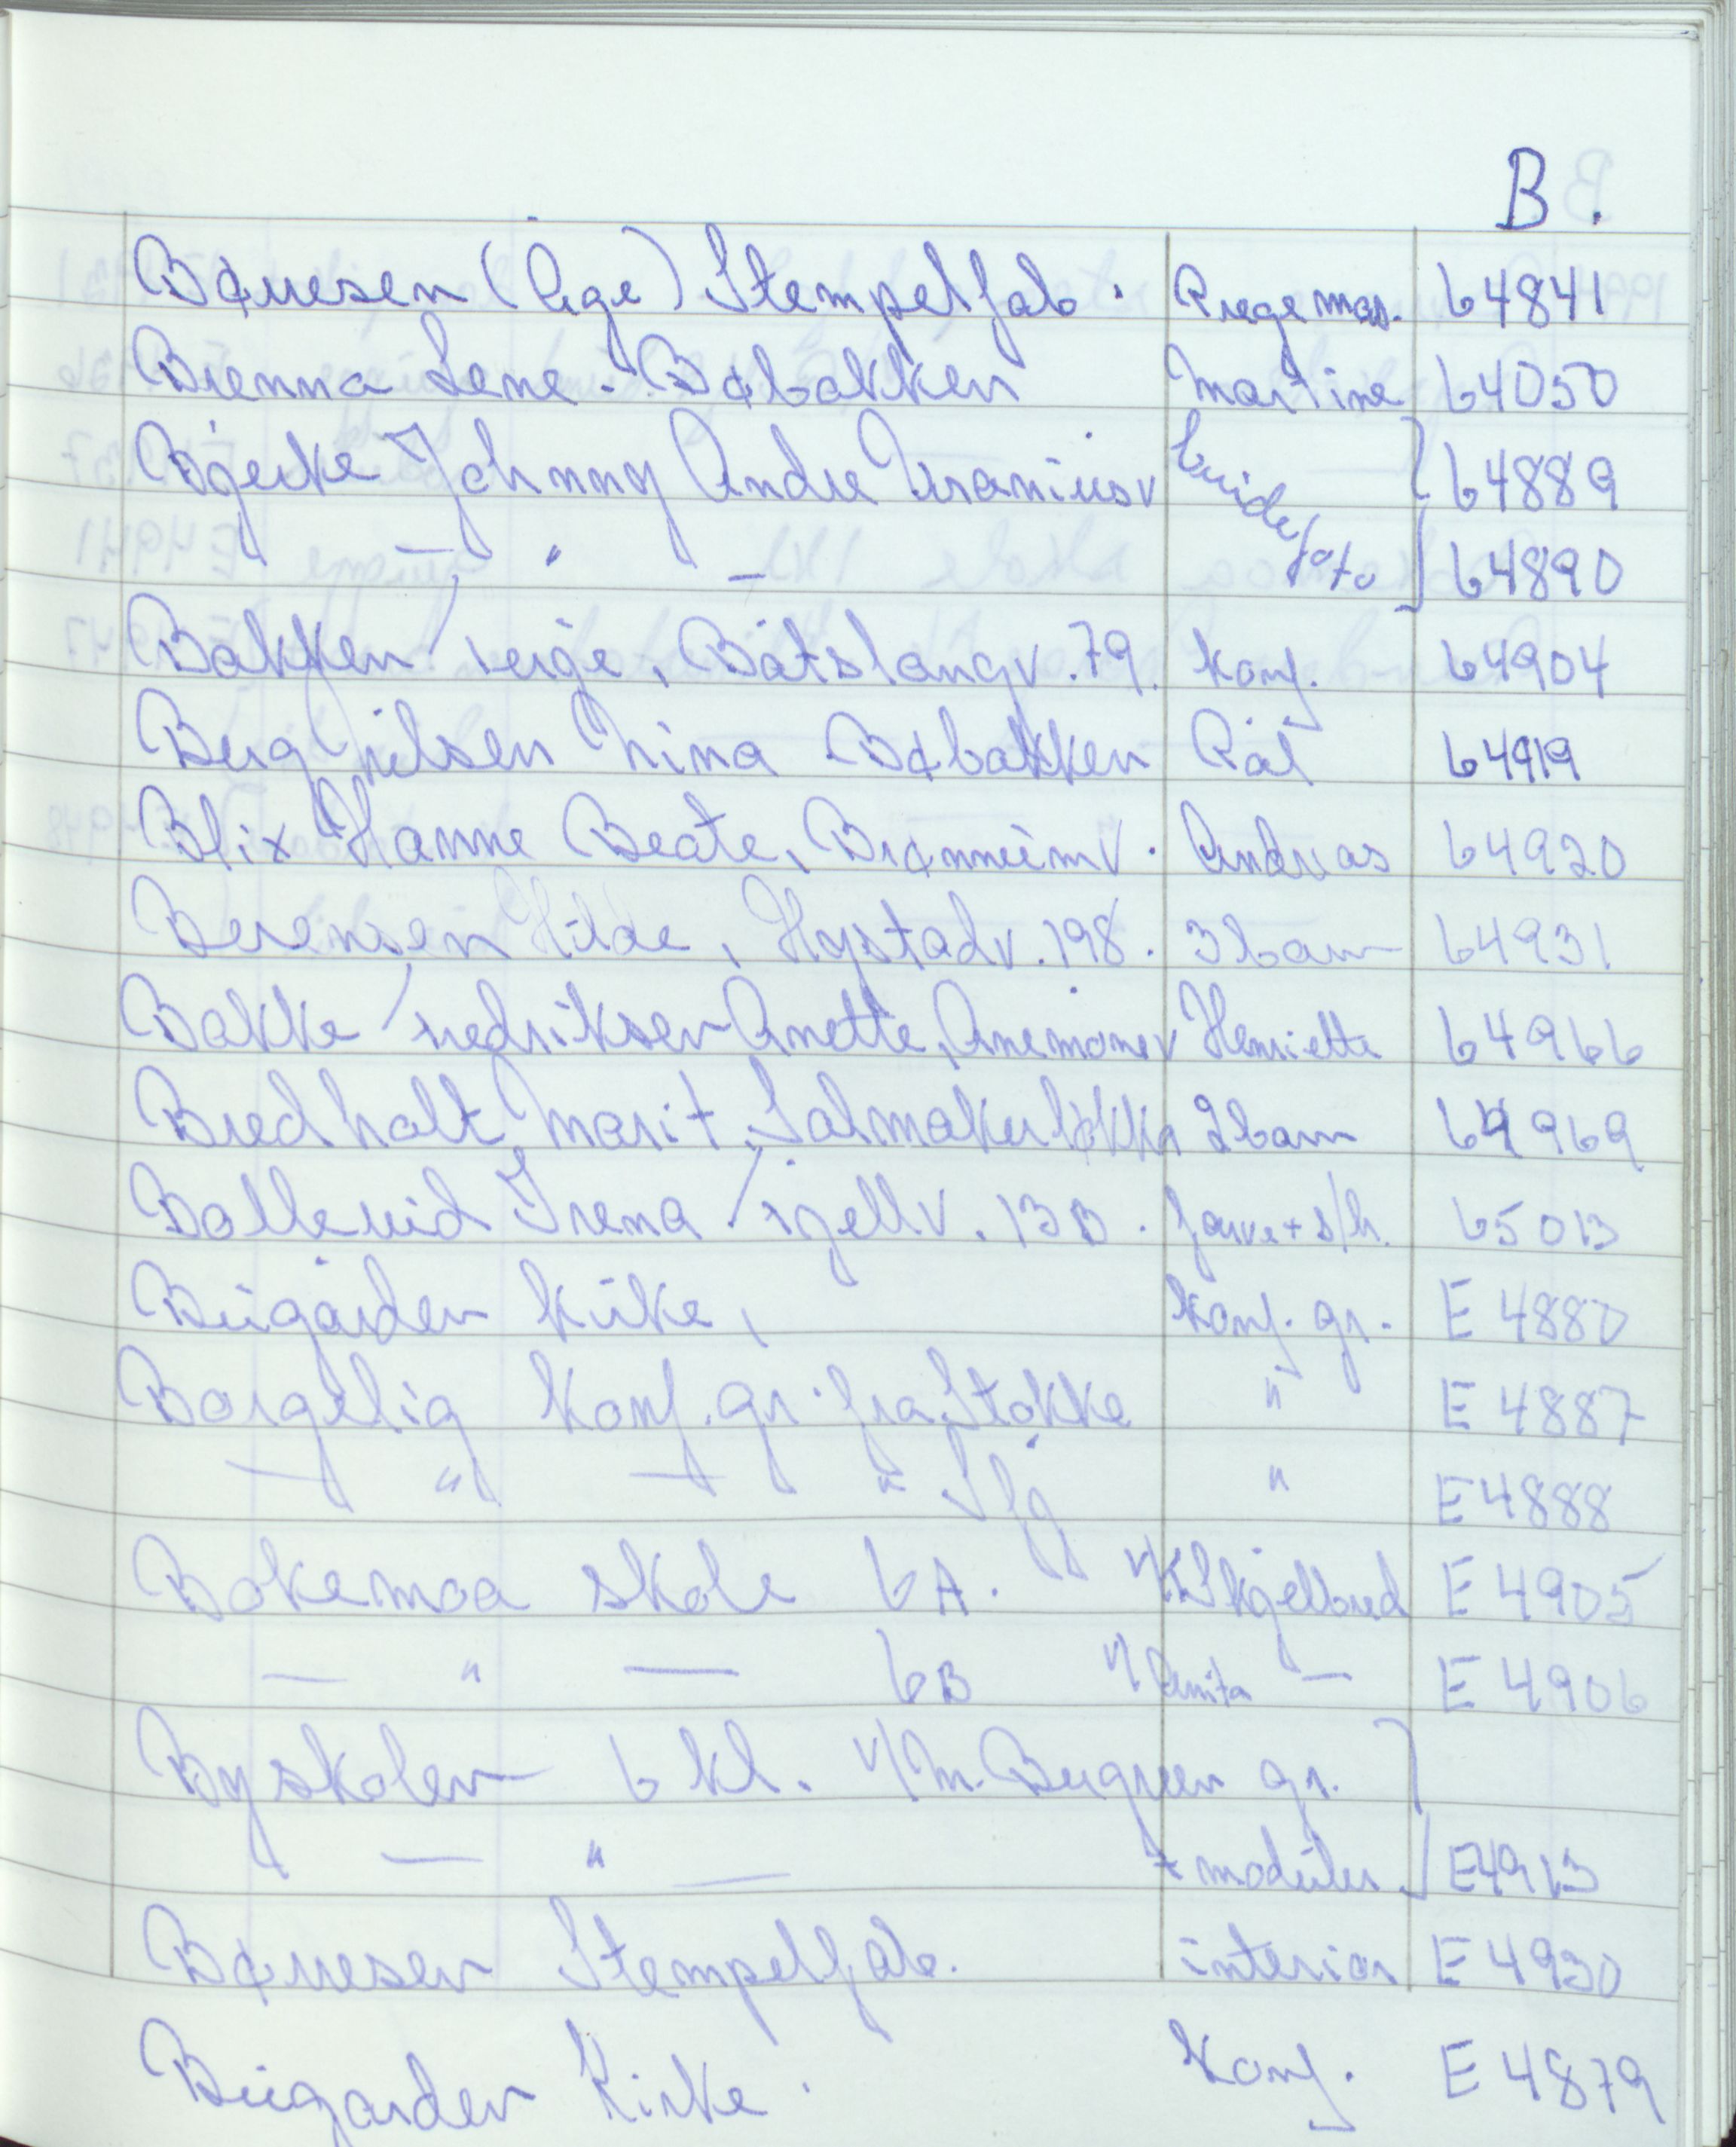 B.
Børresen (Åge) Stempelfab. Pregemas. 64841
Brenna Lene. Bøbakken Martine 64050
Bjerke Johnny Andre Uraniusv brudefoto } 64889
— " — 64890
Bakken Terje, Båtslangv. 79. konf. 64904
Berg Nilsen Nina Bøbakken Pål 64919
Blix Hanne Beate, Brønneimv. Andreas 64920
Berensen Hilde, Hystadv. 198. 3 barn 64931
Bakke Fredriksen Anette, Anemonev Henriette 64966
Bredholt Marit, Salmakerløkka 2 barn 64969
Bollerud Irena Tigellv. 13B. farve + s/h. 65013
Bugården kirke, konf. gr. E 4880
Borgelig konf. gr. fra Stokke " E 4887
— " — " Sfj " E 4888
Bokemoa skole 6A. v/K. Skjelbred E 4905
— " — 6B v/Anita — E 4906
Byskolen 6 kl. v/M. Bergreen gr.
— " — + moduler E4913
Børresen Stempelfab. interiør E 4930
Bugården Kirke. Konf. E 4879